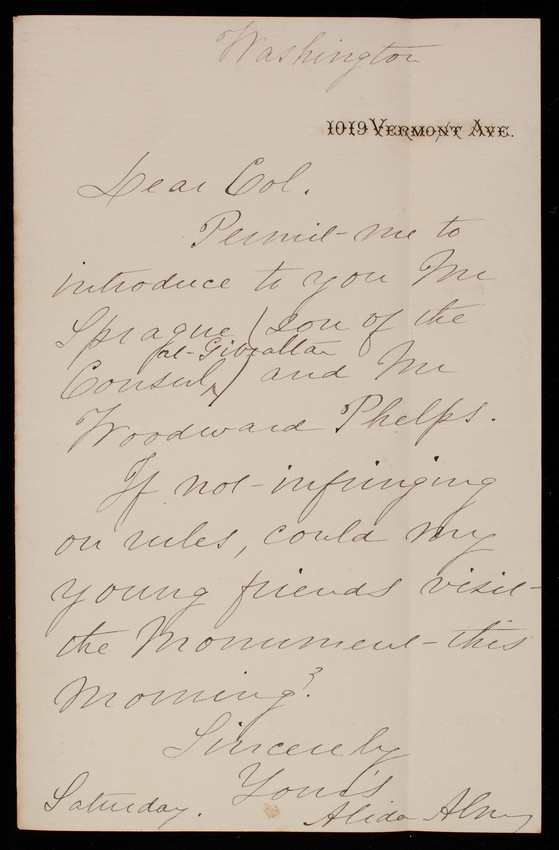 Washington
1019 VERMONT AVE.
Dear Col.
Permit me to
introduce to you Mr
Sprague (son of the
at Gibraltar
Consul) and Mr
Woodward Phelps.
If not infringing
on rules, could my
young friends visit
the Monument this
morning?
Sincerely
Yours
Saturday. Alida Almy